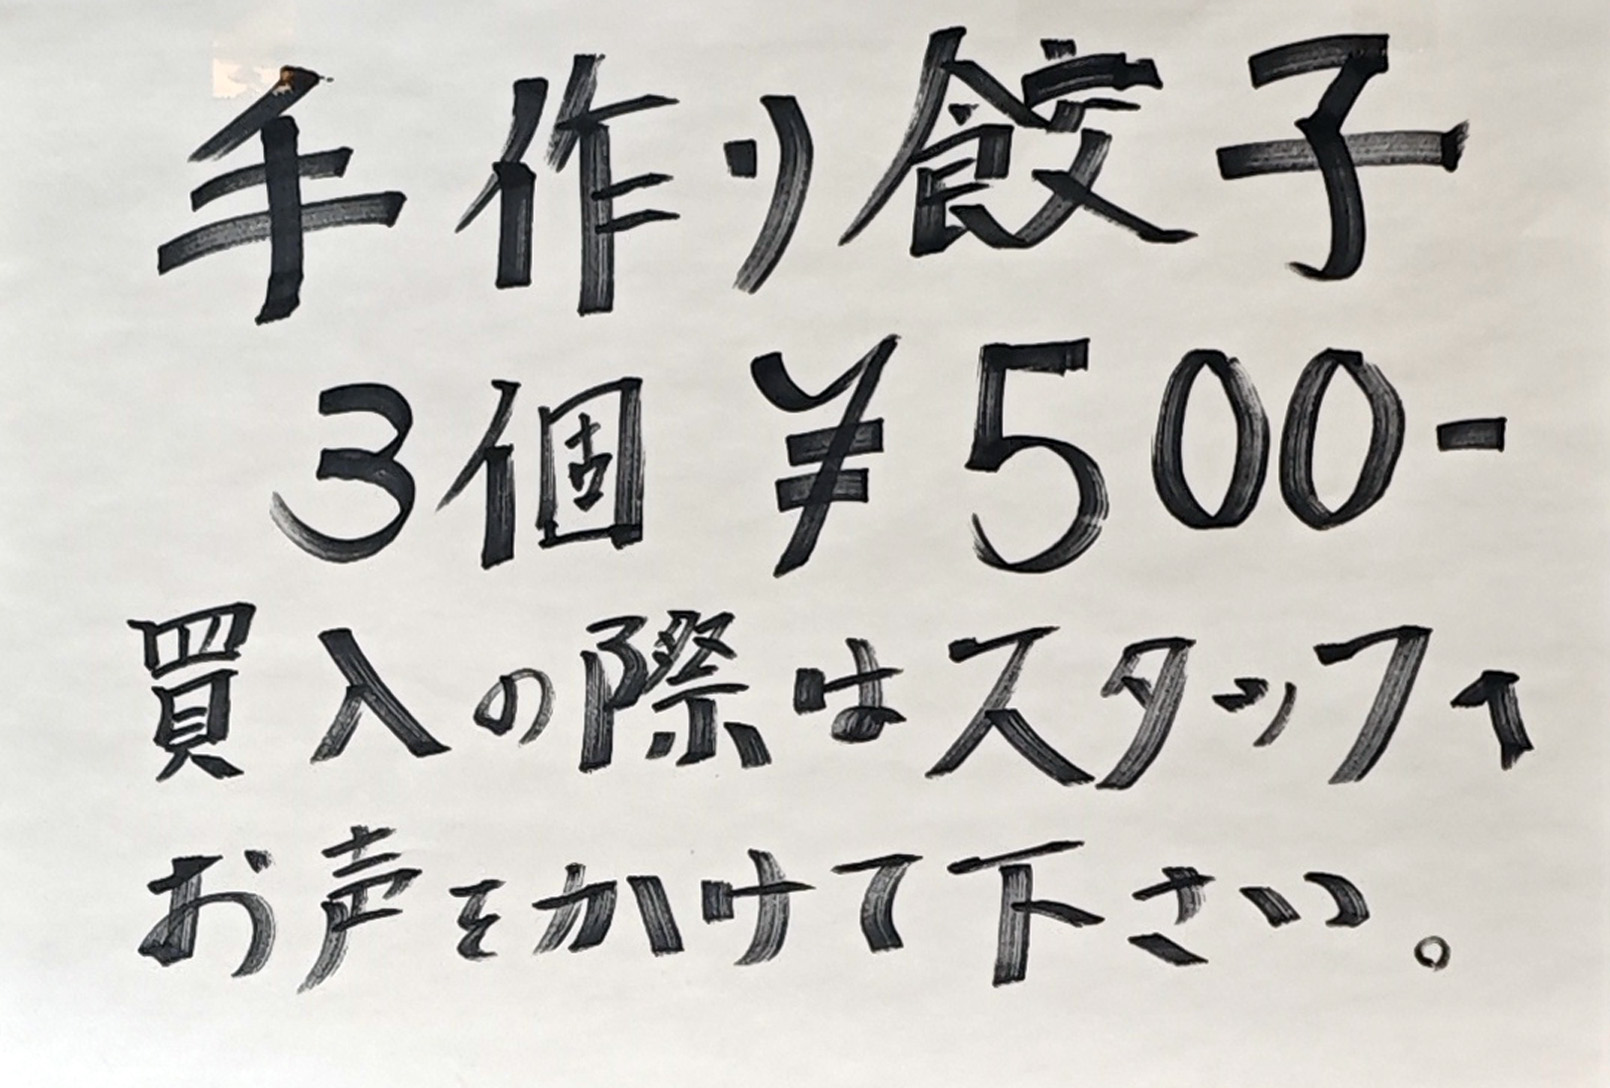 手作り餃子
3個 ¥500-
買入の際はスタッフへ
お声をかけて下さい。